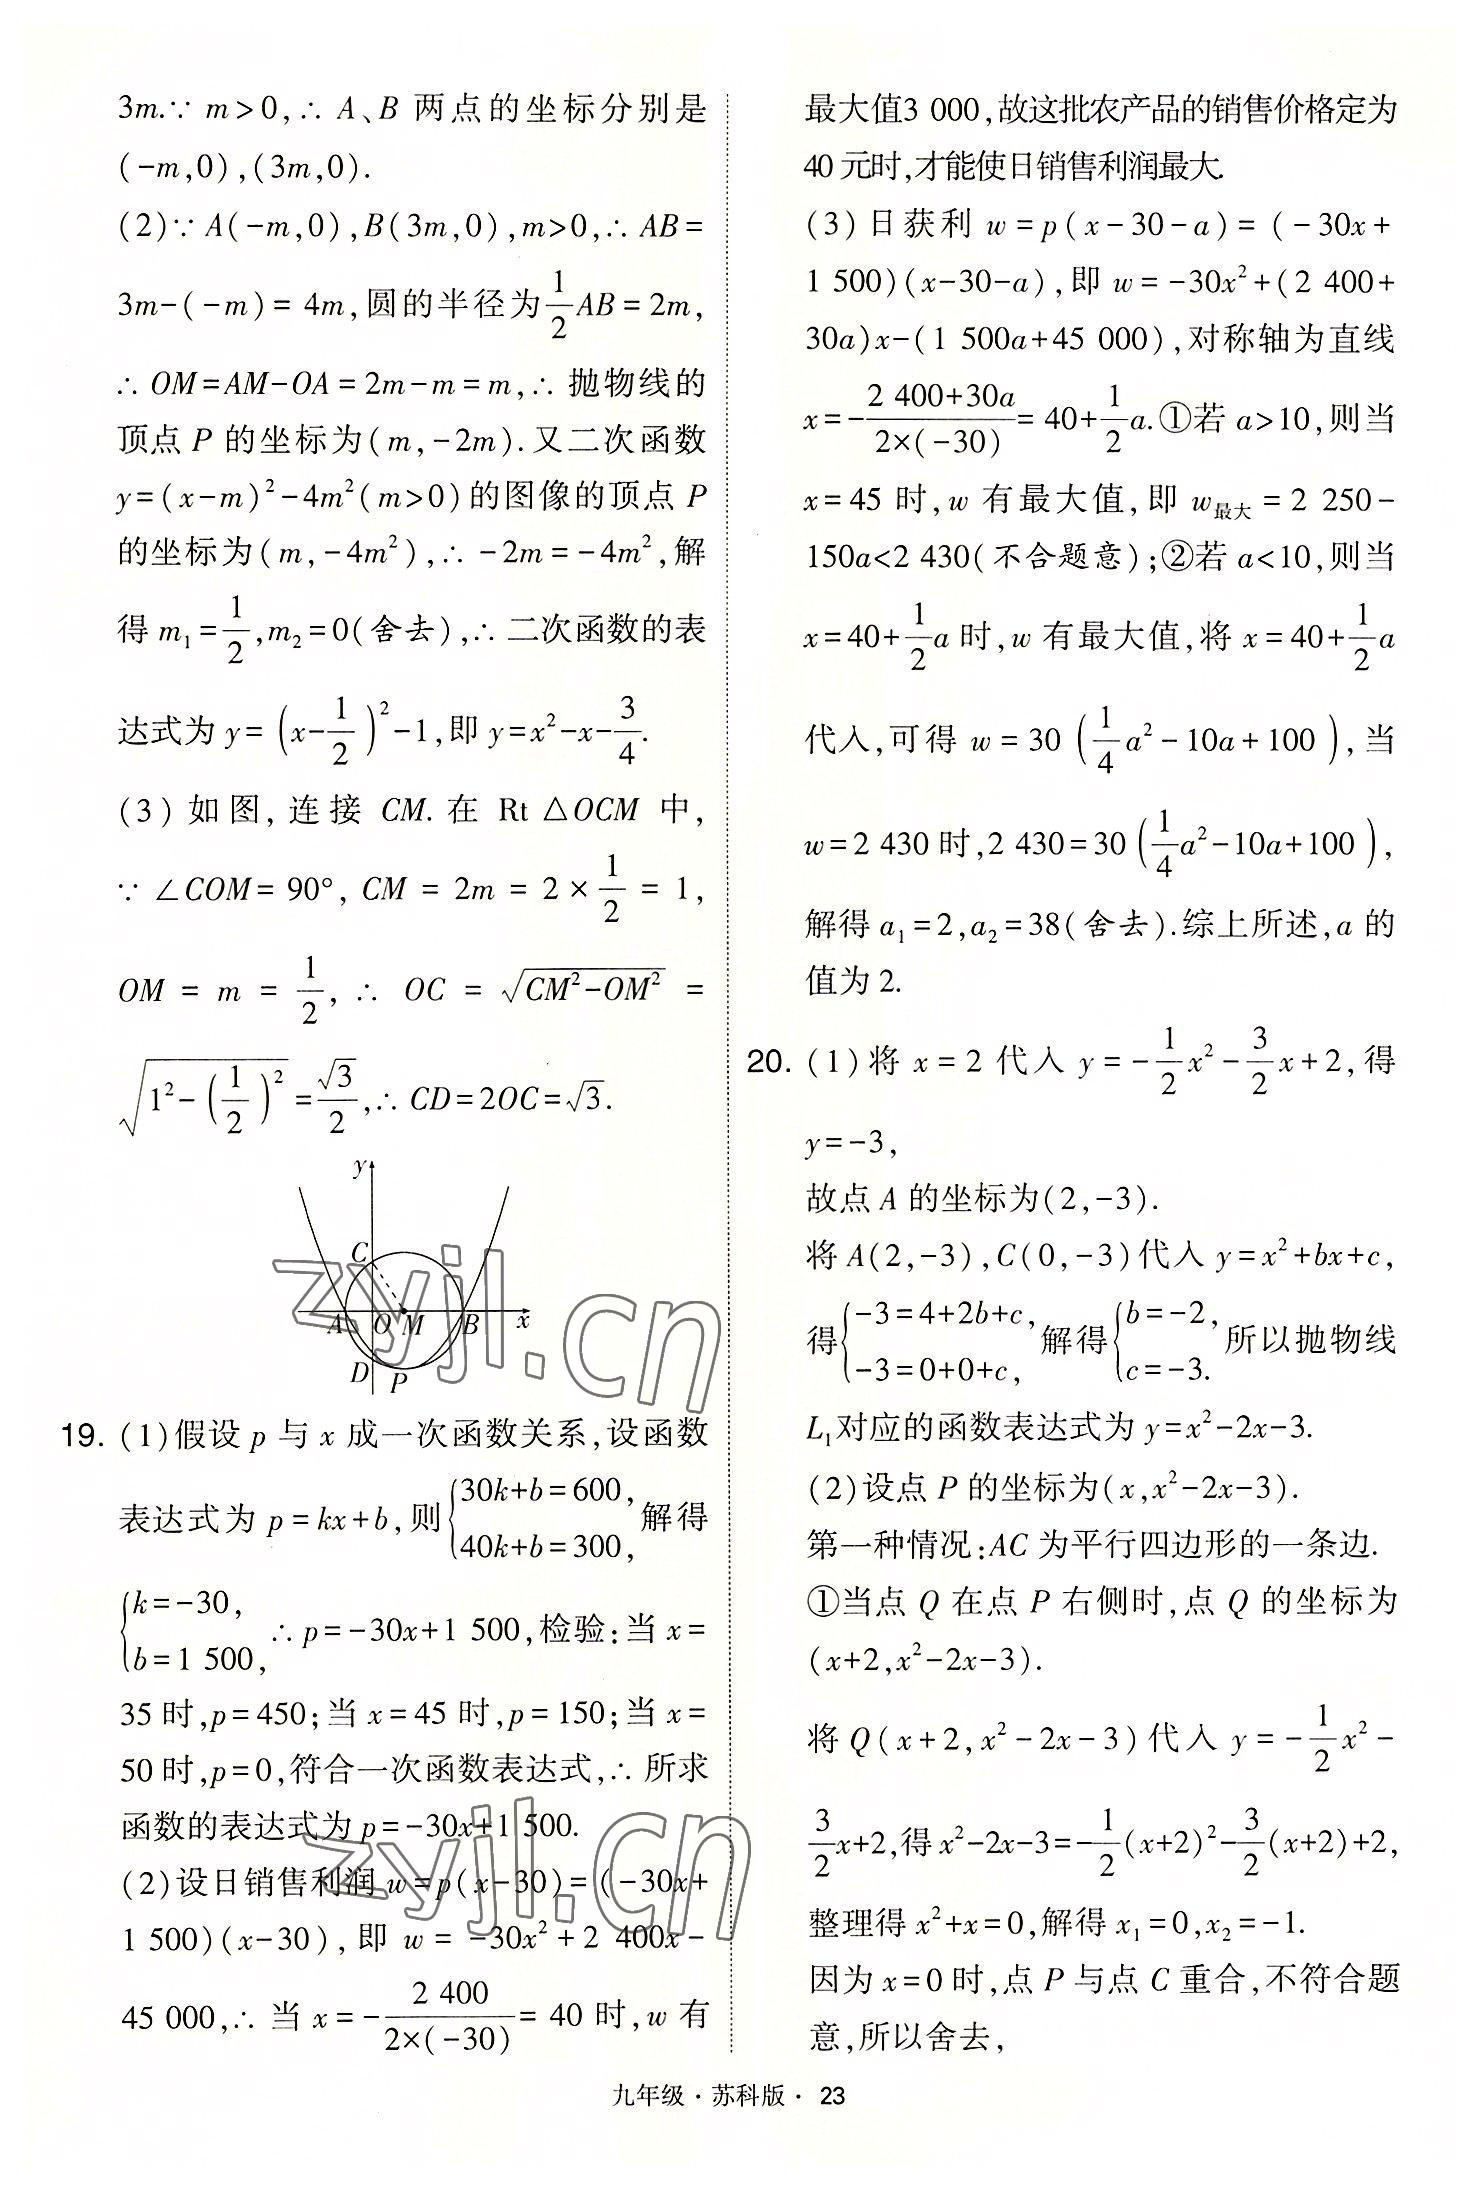 3m.∵ m>0,∴ A、B 两点的坐标分别是
(-m,0),(3m,0).
(2)∵ A(-m,0),B(3m,0),m>0,∴ AB=
3m-(-m)= 4m,圆的半径为1/2AB=2m,
∴ OM=AM-OA=2m-m=m,∴ 抛物线的
顶点 P 的坐标为(m,-2m).又二次函数
y=(x-m)²-4m²(m>0)的图像的顶点 P
的坐标为(m,-4m²),∴ -2m=-4m²,解
得 m₁=1/2,m₂=0(舍去),∴ 二次函数的表
达式为 y=(x-1/2)²-1,即 y=x²-x-3/4.
(3) 如图, 连接 CM. 在 Rt △OCM 中,
∵ ∠COM= 90°, CM = 2m = 2×1/2 = 1,
OM = m = 1/2, ∴ OC = √(CM²-OM²) =
√(1²-(1/2)²)=√3/2,∴ CD=2OC=√3.
y
C
A O M B x
D P
19. (1)假设 p 与 x 成一次函数关系,设函数
表达式为 p=kx+b,则{30k+b=600, 40k+b=300, 解得
{k=-30, b=1 500, ∴ p=-30x+1 500,检验:当 x=
35 时,p=450;当 x=45 时,p=150;当 x=
50 时,p=0,符合一次函数表达式,∴ 所求
函数的表达式为 p=-30x+1 500.
(2)设日销售利润 w=p(x-30)=(-30x+
1 500)(x-30), 即 w= -30x²+2 400x-
45 000,∴ 当 x=-2 400/(2×(-30))= 40 时,w 有
最大值3 000,故这批农产品的销售价格定为
40 元时,才能使日销售利润最大.
(3)日获利 w=p(x-30-a)= (-30x+
1 500)(x-30-a),即 w=-30x²+(2 400+
30a)x-(1 500a+45 000),对称轴为直线
x=-(2 400+30a)/(2×(-30))= 40+1/2a.①若 a>10,则当
x=45 时,w 有最大值,即 w最大=2 250-
150a<2 430(不合题意);②若 a<10,则当
x=40+1/2a 时,w 有最大值,将 x=40+1/2a
代入,可得 w=30(1/4a²-10a+100),当
w=2 430 时,2 430=30(1/4a²-10a+100),
解得 a₁=2,a₂=38(舍去).综上所述,a 的
值为 2.
20. (1)将 x=2 代入 y=-1/2x²-3/2x+2,得
y=-3,
故点 A 的坐标为(2,-3).
将 A(2,-3),C(0,-3)代入 y=x²+bx+c,
得{-3=4+2b+c, -3=0+0+c, 解得{b=-2, c=-3. 所以抛物线
L₁对应的函数表达式为 y=x²-2x-3.
(2)设点 P 的坐标为(x,x²-2x-3).
第一种情况:AC 为平行四边形的一条边.
①当点 Q 在点 P 右侧时,点 Q 的坐标为
(x+2,x²-2x-3).
将 Q(x+2,x²-2x-3)代入 y=-1/2x²-
3/2x+2,得 x²-2x-3=-1/2(x+2)²-3/2(x+2)+2,
整理得 x²+x=0,解得 x₁=0,x₂=-1.
因为 x=0 时,点 P 与点 C 重合,不符合题
意,所以舍去,
九年级·苏科版· 23
zyjl.cn
zyjl.cn